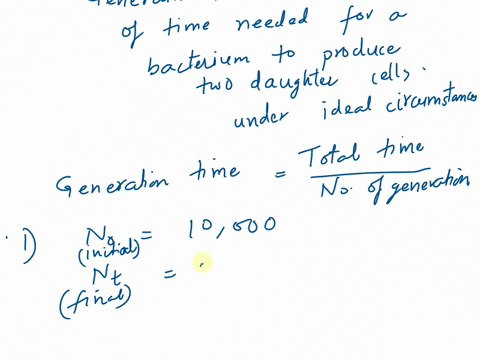 Generation
of time needed for a
bacterium to produce
two daughter cells.
under ideal circumstances
Generation time = Total time / No. of generation
1) N₀ = 10,000
(initial)
Nt =
(final)